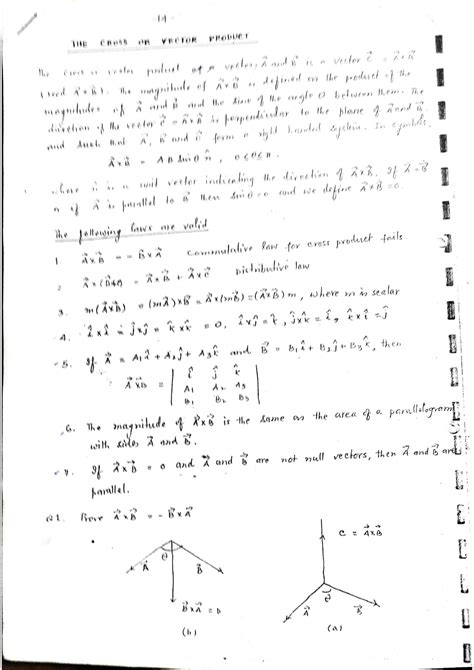 -14-
THE CROSS OR VECTOR PRODUCT
The cross or vector product of vectors A⃗ and B⃗ is a vector C⃗ = A⃗×B⃗
(read A⃗×B⃗). The magnitude of A⃗×B⃗ is defined as the product of the
magnitudes of A⃗ and B⃗ and the sine of the angle θ between them. The
direction of the vector C⃗ = A⃗×B⃗ is perpendicular to the plane of A⃗ and B⃗,
and such that A⃗, B⃗ and C⃗ form a right handed system. In symbols,
A⃗×B⃗ = AB sinθ n̂, 0≤θ≤π.
where n̂ is a unit vector indicating the direction of A⃗×B⃗. If A⃗=B⃗
A⃗ is parallel to B⃗ then sinθ=0 and we define A⃗×B⃗=0.
The following laws are valid
1. A⃗×B⃗ = -B⃗×A⃗ Commutative law for cross product fails
A⃗×(B⃗+C⃗) = A⃗×B⃗ + A⃗×C⃗ Distributive law
3. m(A⃗×B⃗) = (mA⃗)×B⃗ = A⃗×(mB⃗) = (A⃗×B⃗)m, where m is scalar
4. î×î = ĵ×ĵ = k̂×k̂ = 0, î×ĵ=k̂, ĵ×k̂=î, k̂×î=ĵ
5. If A⃗ = A₁î+A₂ĵ+A₃k̂ and B⃗ = B₁î+B₂ĵ+B₃k̂, then
î ĵ k̂
A⃗×B⃗ = A₁ A₂ A₃
B₁ B₂ B₃
6. The magnitude of A⃗×B⃗ is the same as the area of a parallelogram
with sides A⃗ and B⃗.
7. If A⃗×B⃗ = 0 and A⃗ and B⃗ are not null vectors, then A⃗ and B⃗ are
parallel.
Q1. Prove A⃗×B⃗ = -B⃗×A⃗
C = A⃗×B⃗
θ
A⃗ B⃗
θ
A⃗ B⃗
B⃗×A⃗ = D
(b) (a)